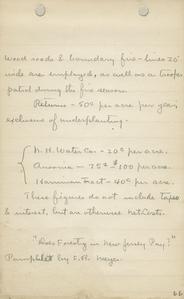 wood roads & boundary fire-lines 20'
wide are employed, as well as a trooper
patrol during the fire season.
Returns - 50¢ per acre per year,
exclusive of underplanting.
N. H. Water Co. - 20¢ per acre.
Ansonia - 75¢ - $100 per acre.
Harriman Tract - 40¢ per acre.
These figures do not include taxes
& interest, but are otherwise net costs.
"Does Forestry in New Jersey Pay?"
Pamphlet by S. B. Meyer.
66